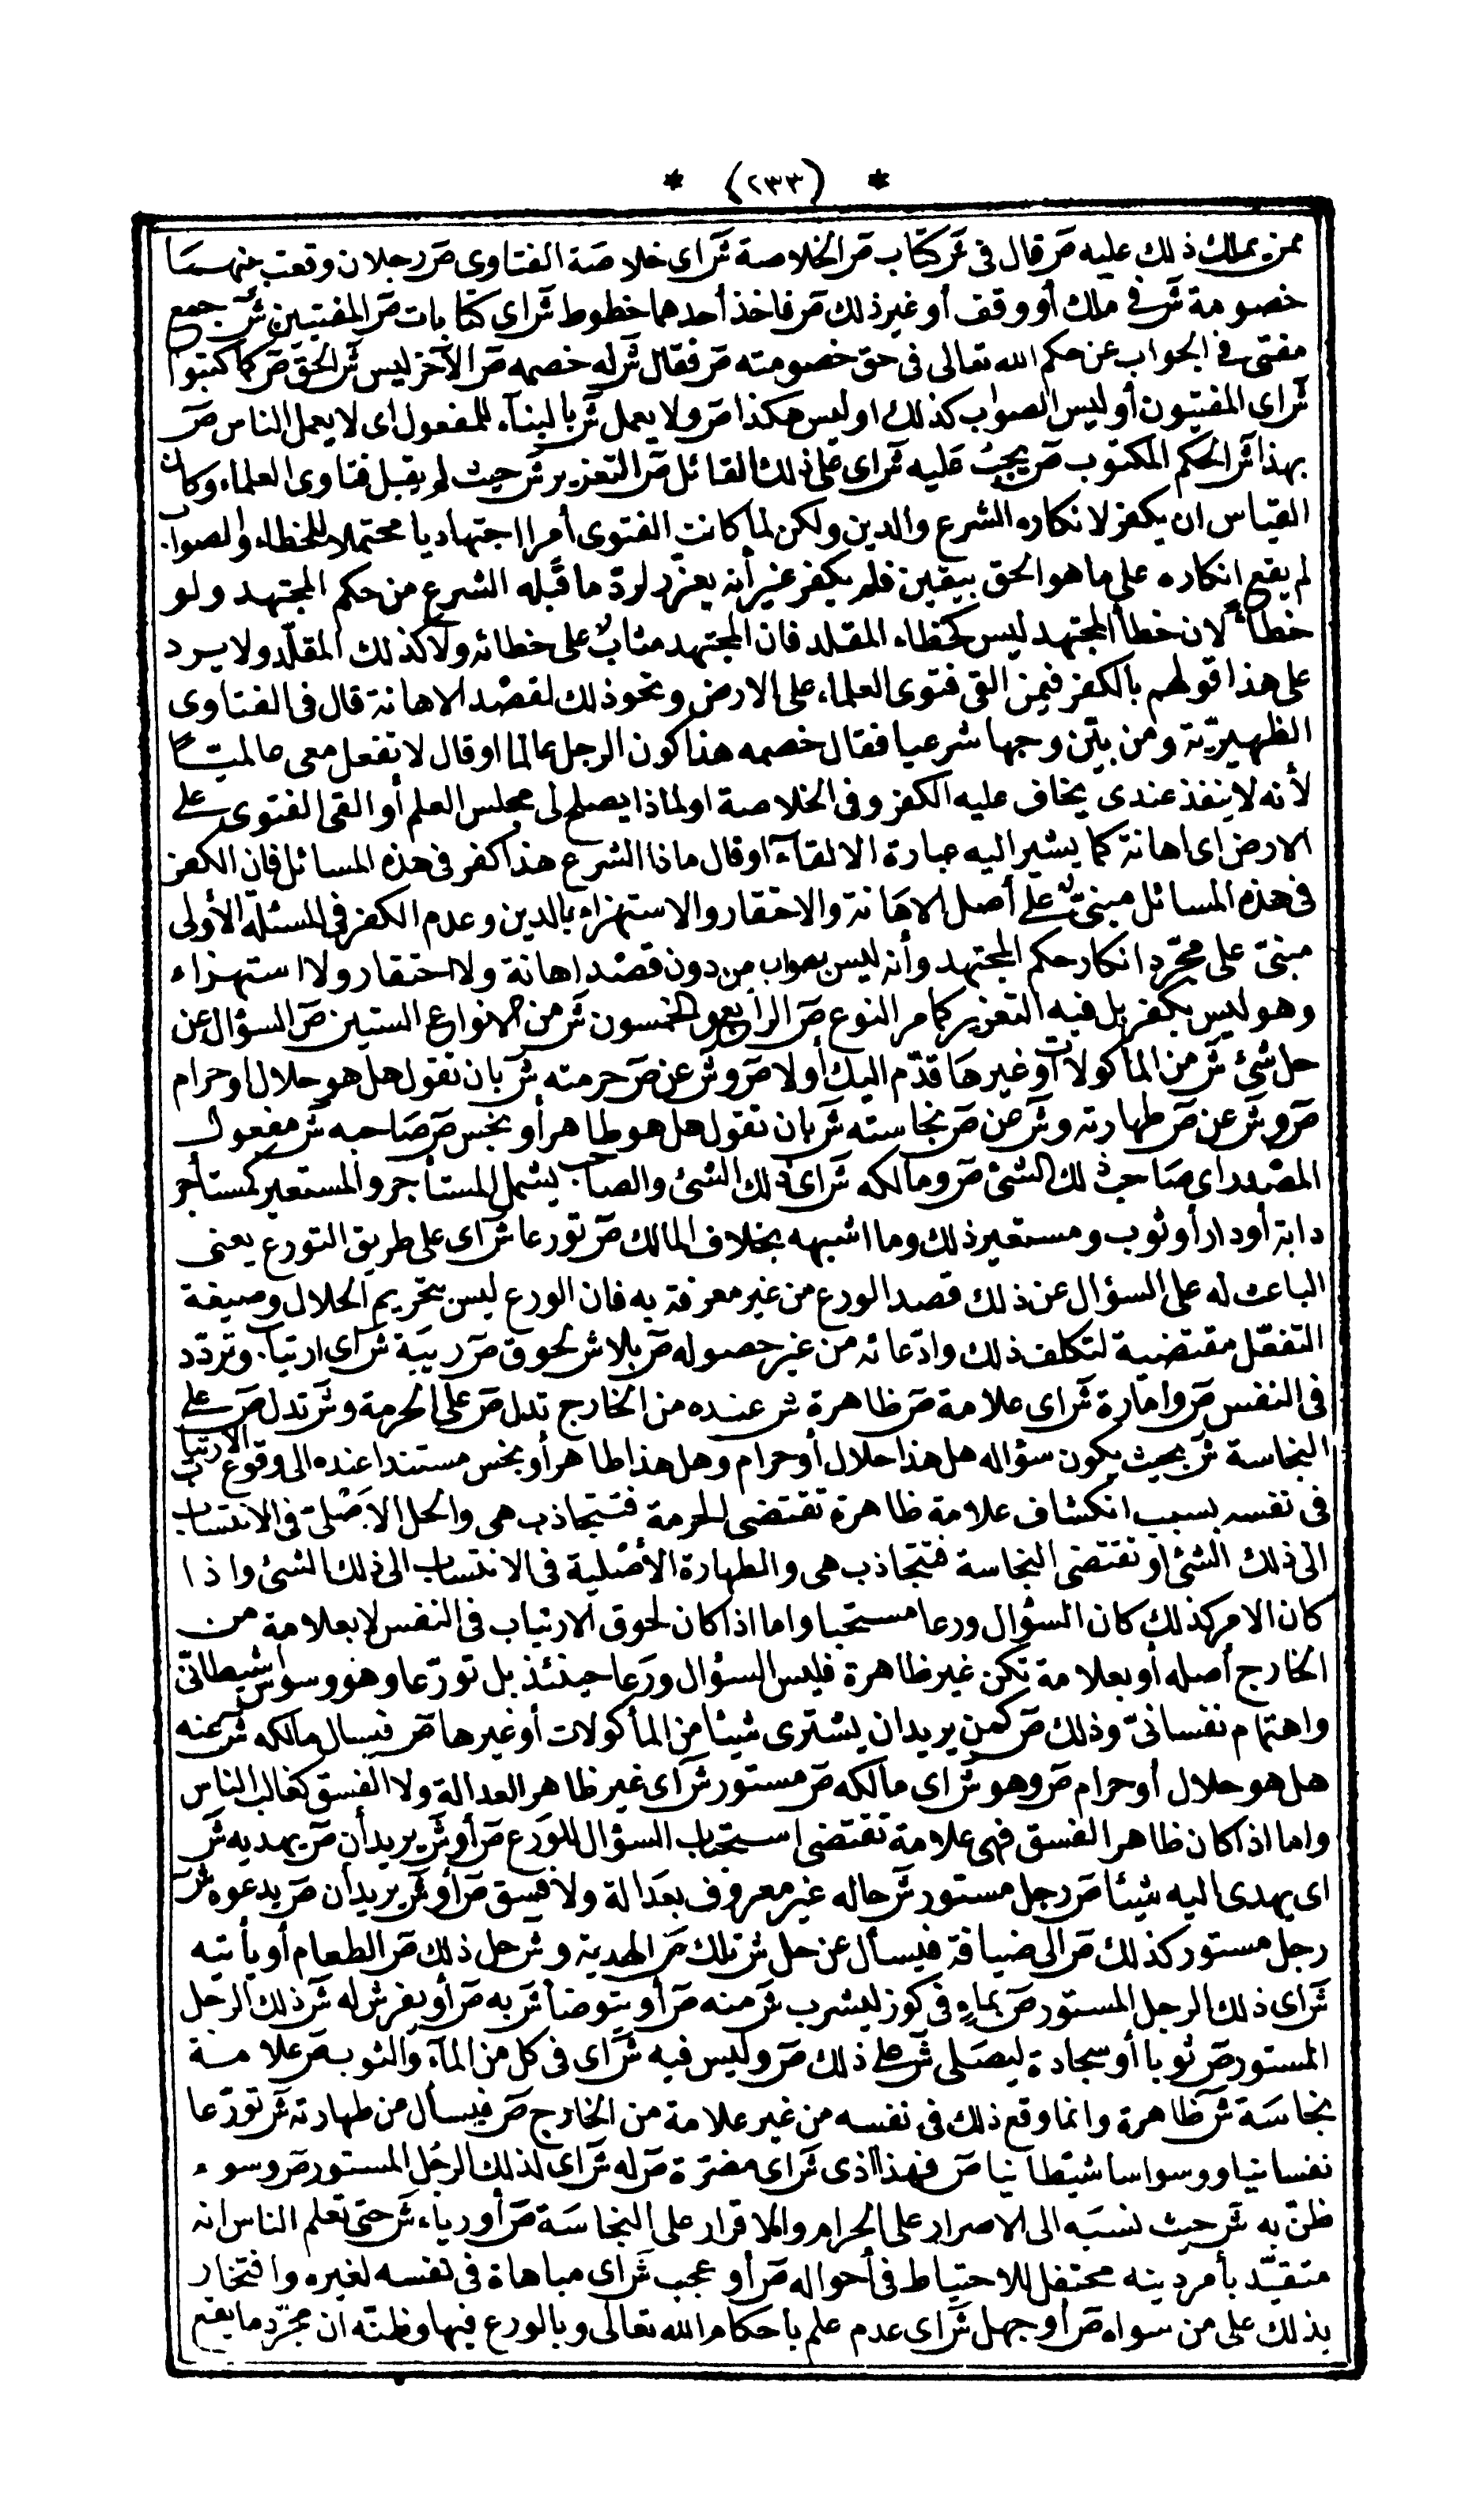 * (٢٣٣) *
ممن يملك ذلك عليه صَ قال فى شَ كتاب صَ الخلاصة شَ اى خلاصة الفتاوى صَ رجلان وقعت بينهما
خصومة شَ فى ملك أو وقف أو غير ذلك صَ فاخذ أحدهما خطوط شَ اى كتابات صَ المفتيين شَ جمع
مفتى فى الجواب عن حكم الله تعالى فى حق خصومته صَ فقال شَ له خصمه صَ الآخر ليس شَ الحق صَ كما كتبوا
شَ اى المفتيون أو ليس الصواب كذلك او ليس هكذا صَ ولا يعمل شَ بالبنآء للمفعول اى لا يعمل الناس صَ
بهذا شَ الحكم المكتوب صَ يجب عليه شَ اى على ذلك القائل صَ التعزير شَ حيث لم يقبل فتاوى العلماء وكان
القياس ان يكفر لانكاره الشرع والدين ولكن لما كانت الفتوى أمرا اجتهاديا محتملا للخطاء والصواب
لم يقع انكاره على ما هو الحق بيقين فلم يكفر غير أنه يعزر لردّ ما قبله الشرع من حكم المجتهد ولو
خطأ لان خطأ المجتهد ليس كخطاء المقلد فان المجتهد مثاب على خطائه ولا كذلك المقلّد ولا يرد
على هذا قولهم بالكفر فيمن القى فتوى العلماء على الارض ونحو ذلك لقصد الاهانة قال فى الفتاوى
الظهيريّة ومن بيّن وجها شرعيا فقال خصمه هذا كون الرجل عالما او قال لا تفعل معى عالميّا
لأنه لا ينفذ عندى يخاف عليه الكفر وفى الخلاصة او لماذا يصلح لى مجلس العلم أو القى الفتوى على
الارض اى اهانة كما يشير اليه عبارة الالقآء او قال ماذا الشرع هذا كفر فى هذه المسائل فان الكفر
فى هذه المسائل مبنىّ على أصل الاهانة والاحتقار والاستهزاء بالدين وعدم الكفر فى المسئلة الأولى
مبنىّ على مجرّد انكار حكم المجتهد وأنه ليس بصواب من دون قصد اهانة ولا احتقار ولا استهزاء
وهو ليس بكفر بل فيه التعزير كما مر النوع صَ الرابع والخمسون شَ من الانواع الستين صَ السؤال عن
حل شئ شَ من المأكولات أو غيرها قدّم اليك أولا صَ وشَ عن صَ حرمته شَ بان تقول هل هو حلال او حرام
صَ وشَ عن صَ طهارته وشَ عن صَ نجاسته شَ بان تقول هل هو طاهر أو نجس صَ صاحبه شَ مفعول
المصدر اى صاحب ذلك الشئ صَ ومالكه شَ اى ذلك الشئ والصاحب يشمل المستأجر والمستعير كمستأجر
دابة أو دار أو ثوب ومستعير ذلك وما اشبهه بخلاف المالك صَ تورعا شَ اى على طريق التورع يعنى
الباعث له على السؤال عن ذلك قصد الورع من غير معرفة به فان الورع ليس بتحريم الحلال وصيغة
التفعّل مقتضية لتكلف ذلك وادّعائه من غير حصوله صَ بلا شَ لحوق صَ ريبة شَ اى ارتياب وتردّد
فى النفس صَ وامارة شَ اى علامة صَ ظاهرة شَ عنده من الخارج تدل صَ على الحرمة وشَ تدل صَ على
النجاسة شَ بحيث يكون سؤاله هل هذا حلال أو حرام وهل هذا طاهر أو نجس مستندا عنده الى وقوع الارتياب
فى نفسه بسبب انكشاف علامة ظاهرة تقتضى الحرمة فتتجاذب هى والحل الاصلى فى الانتساب
الى ذلك الشئ او تقتضى النجاسة فتتجاذب هى والطهارة الأصلية فى الانتساب الى ذلك الشئ واذا
كان الامر كذلك كان السؤال ورعا مستحبا واما اذا كان لحوق الارتياب فى النفس لا بعلامة من
الخارج أصله أو بعلامة تكن غير ظاهرة فليس السؤال ورعا حينئذ بل تورّعا وهو وسواس شيطانىّ
واهتمام نفسانىّ وذلك صَ كمن يريد ان يشترى شيئا من المأكولات أو غيرها صَ فيسال مالكه شَ عنه
هل هو حلال أو حرام صَ وهو شَ اى مالكه صَ مستور شَ اى غير ظاهر العدالة ولا الفسق كغالب الناس
واما اذا كان ظاهر الفسق فهى علامة تقتضى استحباب السؤال للورع صَ أو شَ يريد أن صَ يهديه شَ
اى يهدى اليه شيئا صَ رجل مستور شَ حاله غير معروف بعدالة ولا فسق صَ أو شَ يريد أن صَ يدعوه شَ
رجل مستور كذلك صَ الى ضيافة فيسأل عن حل شَ تلك صَ الهدية وشَ حل ذلك صَ الطعام أو يأتيه
شَ اى ذلك الرجل المستور صَ بماءٍ فى كوز ليشرب شَ منه صَ أو يتوضأ شَ به صَ أو يفرش له شَ ذلك الرجل
المستور صَ ثوبا أو سجادة ليصلى شَ على ذلك صَ وليس فيه شَ اى فى كل من المآء والثوب صَ علامة
نجاسة شَ ظاهرة وانما وقع ذلك فى نفسه من غير علامة من الخارج صَ فيسأل من طهارته شَ تورّعا
نفسانيا ووسواسا شيطانيا صَ فهذا اذى شَ اى مضرّة صَ له شَ اى لذلك الرجل المستور صَ وسوء
ظن به شَ حيث نسبه الى الاصرار على الحرام والاقرار على النجاسة صَ أو رياء شَ حتى تعلم الناس انه
متقيّد بأمر دينه محتفل للاحتياط فى أحواله صَ أو عجب شَ اى مباهاة فى نفسه لغيره وافتخار
بذلك على من سواه صَ أو جهل شَ اى عدم علم باحكام الله تعالى وبالورع فيها وظنّه ان مجرّد ما يقع